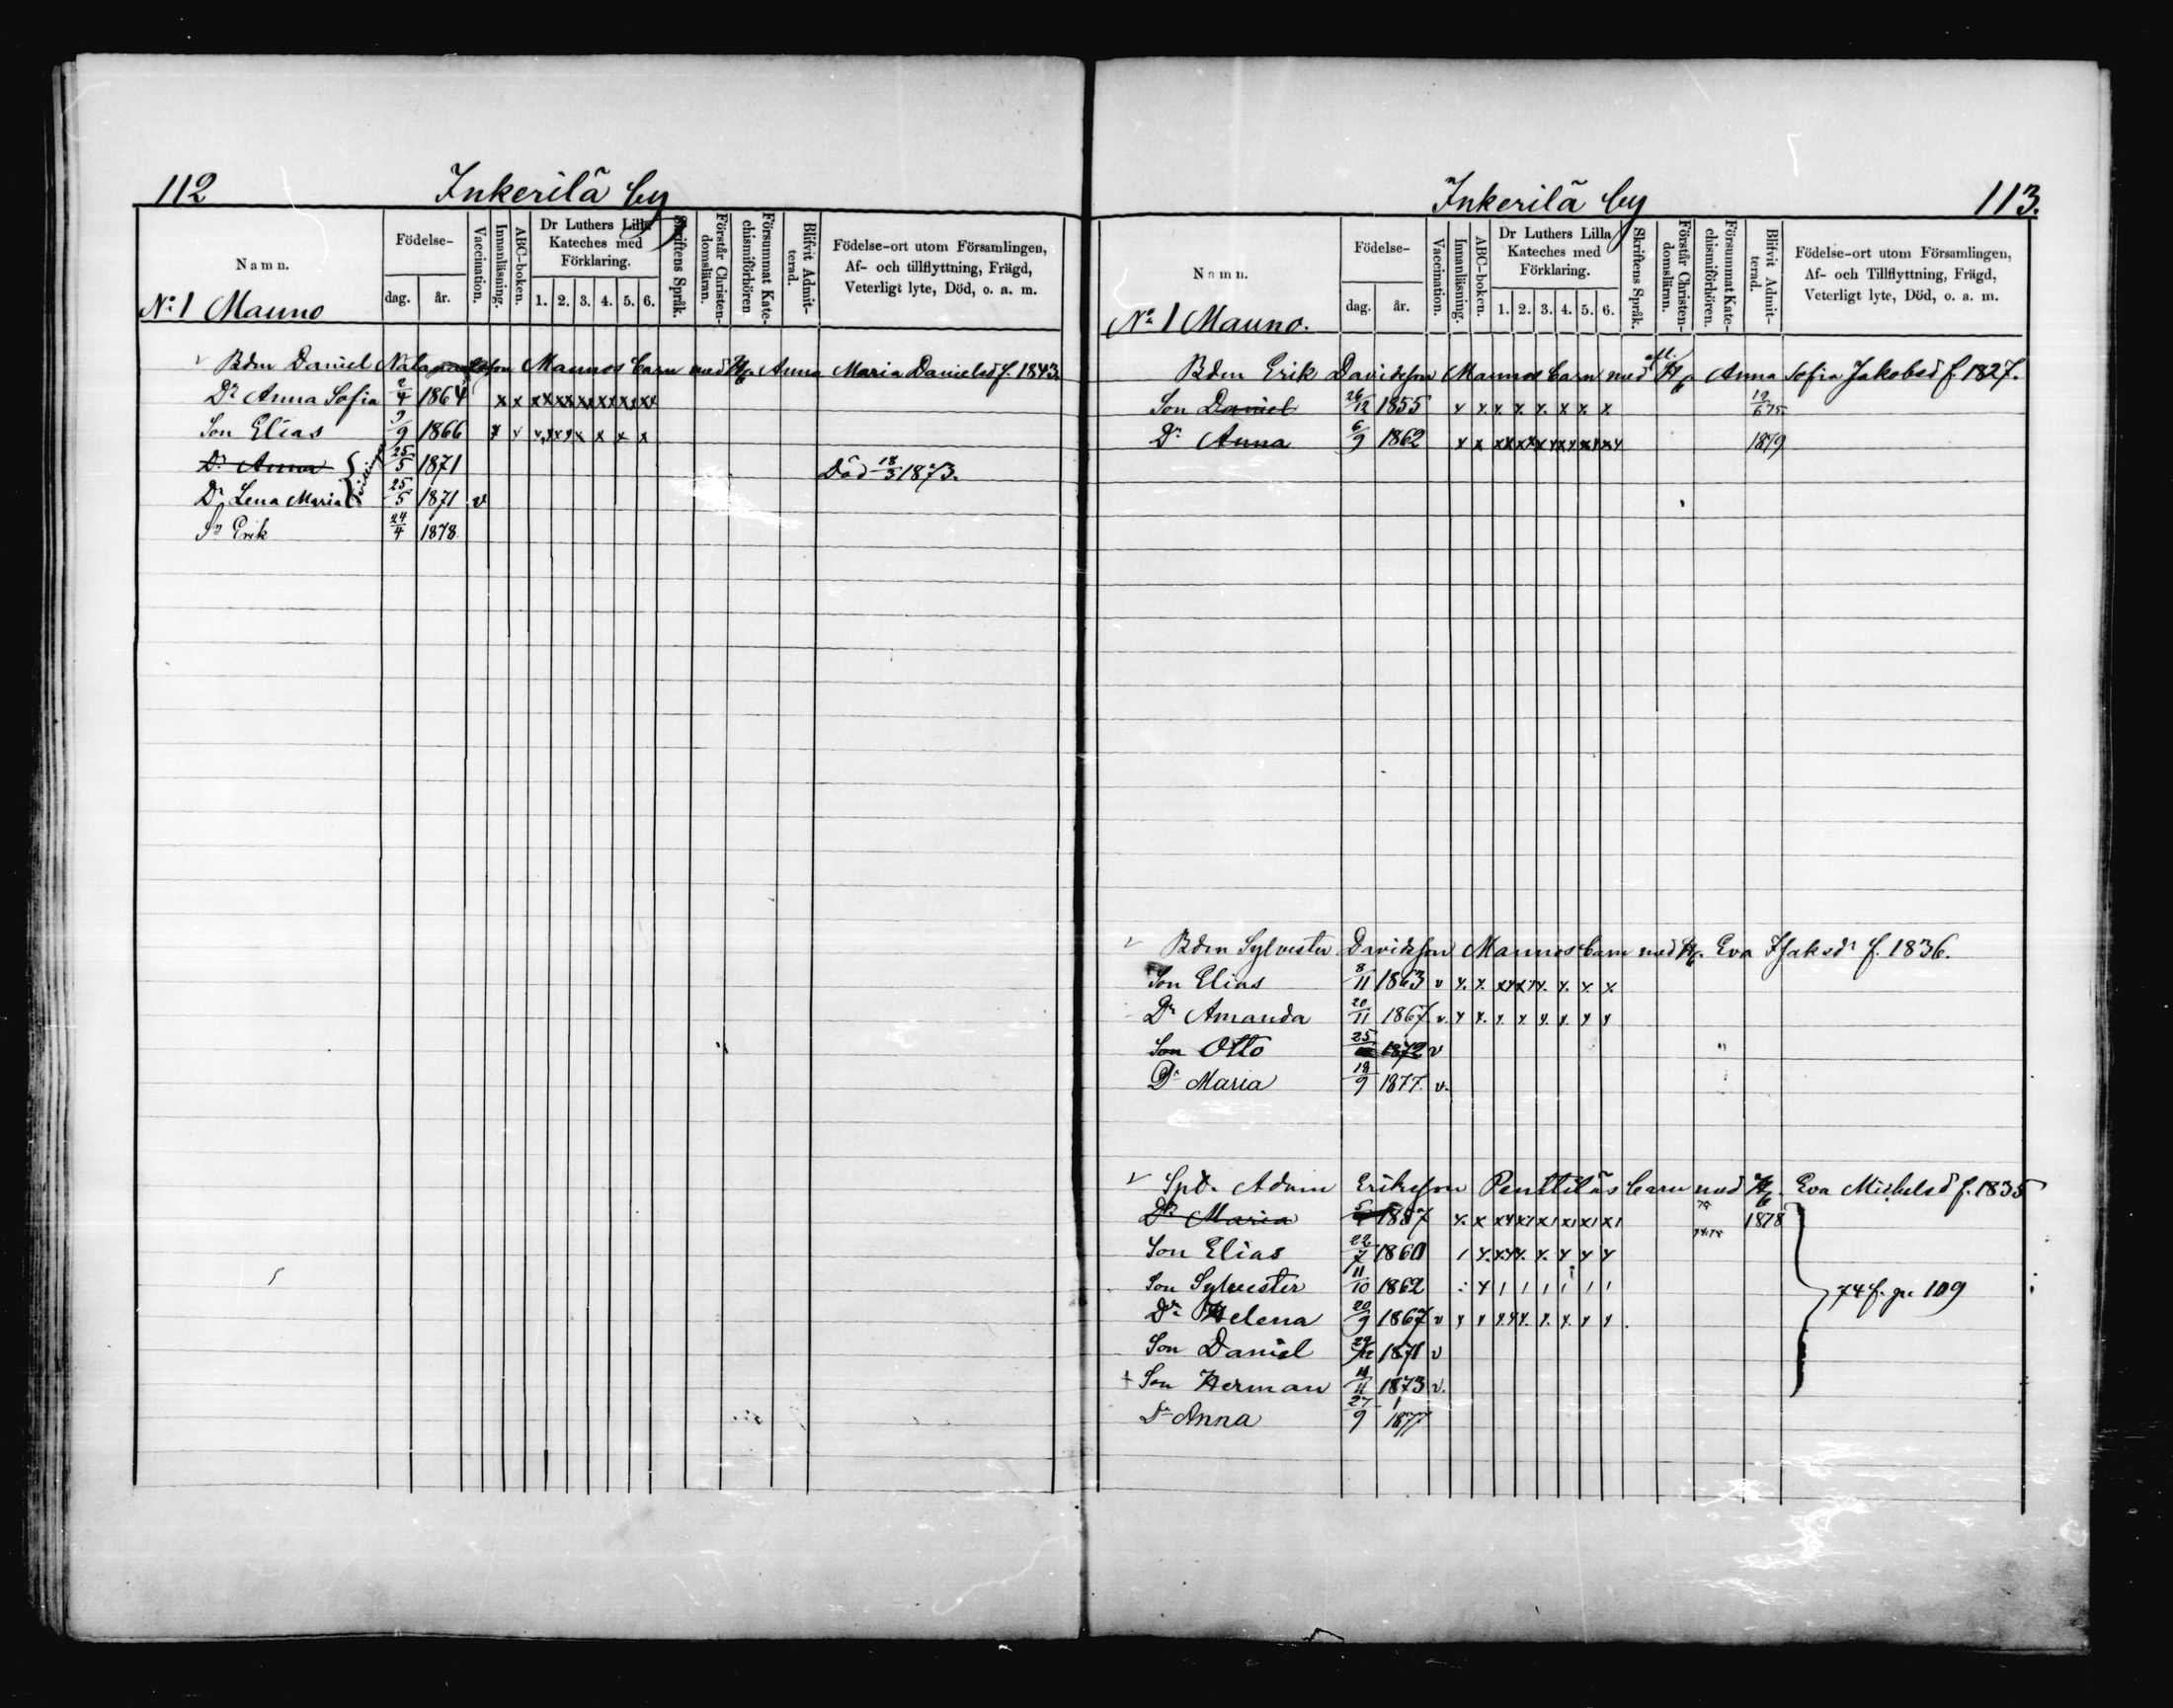 112 Inkerilä by
Namn. Födelse- dag. år. Vaccination. Innanläsning. ABC-boken. Dr Luthers Lilla Kateches med Förklaring. 1. 2. 3. 4. 5. 6. Skriftens Språk. Förstår Christen-domsläran. Försummat Kate-chismiförhören Blifvit Admit-terad. Födelse-ort utom Församlingen, Af- och tillflyttning, Frägd, Veterligt lyte, Död, o. a. m.
No: 1 Mauno
Bdm Daniel Maunos barn med Anna Maria Danielsd f. 1843
Dr Anna Sofia 2/4 1864 x x x x x x x x x x x x x x
Son Elias 3/9 1866 x v x x x x x x x x
Dr Anna 25/5 1871 Död 18/3 1873.
Dr Lena Maria 25/5 1871 v
Sn Erik 24/4 1878
Inkerilä by 113.
Namn. Födelse- dag. år. Vaccination. Innanläsning. ABC-boken. Dr Luthers Lilla Kateches med Förklaring. 1. 2. 3. 4. 5. 6. Skriftens Språk. Förstår Christen-domsläran. Försummat Kate-chismiförhören. Blifvit Admit-terad. Födelse-ort utom Församlingen, Af- och Tillflyttning, Frägd, Veterligt lyte, Död, o. a. m.
No: 1 Mauno.
Bdm Erik Davidsson Maunos barn med afl. Anna Sofia Jakobsd f. 1827.
Son Daniel 26/12 1855 x x x x x x x x 19/6 75
Dr Anna 6/9 1862 x x x x x x x x x x x x x x 1879
Bdm Sylvester Davidsson Maunos barn med Eva Isaksdr f. 1836.
Son Elias 8/11 1863 v x x x x x x x x x x
Dr Amanda 20/11 1867 v. x x x x x x x x
Son Otto 25 1872 v
Dr Maria 18/9 1877. v.
Spt. Adam Eriksson Penttiläs barn med Eva Michelsd f. 1835
Dr Maria 1857 x x x x x x x x x 1878
Son Elias 22/7 1860 / x x x x x x x x
Son Sylvester 11/10 1862 : x / / / / / /
Dr Helena 20/9 1867 v x x x x x x x x x
74 f. pa 109
Son Daniel 29/12 1871 v
+ Son Herman 11/11 1873 v.
Dr Anna 27/9 1877